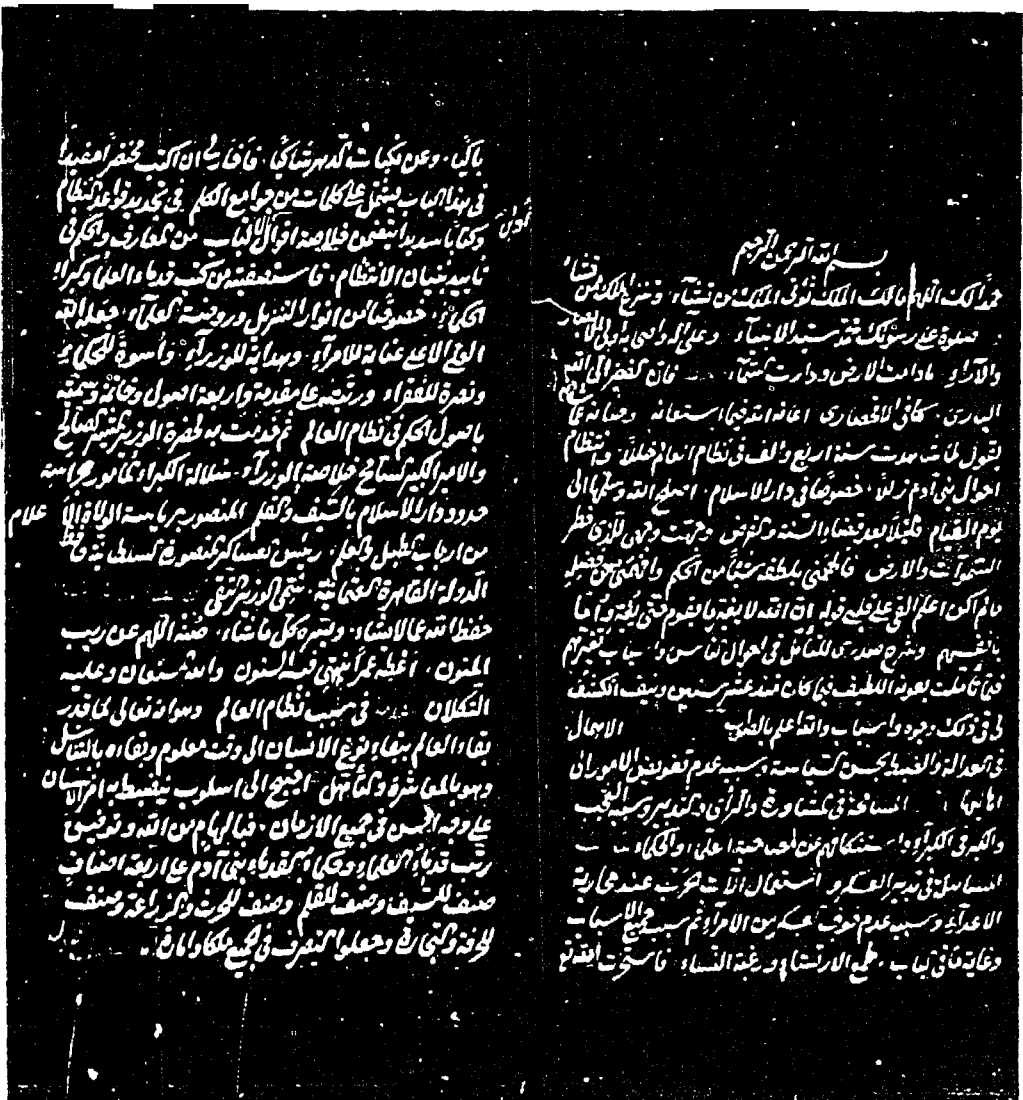 بسم الله الرحمن الرحيم
حمداً لك اللهم مالك الملك تؤتى الملك من تشاء وتنزع الملك ممن تشاء
وصلوة على رسولك محمد سيد الانبياء وعلى اله واصحابه اولى الابصار
والآراء ما دامت الارض ودارت السماء فان الفقير الى الله
البارى كافى الاقحصارى اعانه الله فيما استعانه وصانه عما شانه
يقول لما شاهدت سنة اربع والف فى نظام العالم خللا وانتظام
احوال بنى آدم زللا خصوصا فى دار الاسلام اصلح الله وسلمها الى
يوم القيام فليلا بعد قضاء السنة والفرض وجهت وجهى للذى فطر
السموات والارض فالهمنى بلطفه شيئا من الحكم وافهمنى من فضله
ما لم اكن اعلم القى على قلبى قوله ان الله لا يغير ما بقوم حتى يغيروا ما
بانفسهم وشرح صدرى للتأمل فى احوال الناس واسباب تغيرهم
فيما تأملت بعونه اللطيف فيما كان منذ عشر سنين ونيف انكشف
لى فى ذلك وجوه واسباب والله اعلم بالصواب الاهمال
فى العدالة والضبط بحسن السياسة وسببه عدم تفويض الامور الى
اهلها المسامحة فى المشاورة والرأى والتدبير وسببه العجب
والكبر فى الكبراء واستنكافهم عن صحبة العلماء والحكماء
المساهلة فى تدبير العسكر و استعمال آلات الحرب عند محاربة
الاعداء وسببه عدم خوف العسكر من الامراء ثم سبب جميع الاسباب
وغاية ما فى الباب طمع الارتشاء ورغبة النساء فاستخرت الله تع
باكيا وعن نكبات الدهر شاكيا ان اكتب مختصرا مفيدا
فى هذا الباب يشتمل على كلمات من جوامع الكلم فى تجديد قواعد النظام
وكتابا سديدا يتضمن خلاصة اقوال اولى الالباب من المعارف والحكم فى
تأييد بنيان الانتظام فاستصفيته من كتب قدماء العلماء وكبراء
الحكماء خصوصا من انوار التنزيل وروضة العلماء جعله الله
العلى الاعلى عناية للامراء وهداية للوزراء واسوة للحكماء
ونصرة للفقراء ورتبته على مقدمة واربعة اصول وخاتمة وسميته
باصول الحكم فى نظام العالم ثم لحضرة الوزير المشير الصالح
والامير الكبير خلاصة الوزراء سلالة الكبراء حراسة
حدود دار الاسلام بالسيف والقلم المنصور برياسة الولاة الاعلام
من ارباب الطبل والعلم رئيس العساكر المنصورة السلطانية حافظ
الدولة القاهرة العثمانية الوزير التقى
حفظه الله عما لا يشاء ويسره كل ما شاء صنه اللهم عن ريب
المنون اعطه عمرا فيه السنون والله المستعان وعليه
التكلان فى سبب نظام العالم وهو انه تعالى لما قدر
بقاء العالم ببقاء نوع الانسان الى وقت معلوم وبقاءه بالتناسل
وهو بالمعاشرة والتأهل احتيج الى اسلوب ينضبط به امر الانسان
على وجه الحسن فى جميع الازمان فبالهام من الله وتوفيق
رتب قدماء العلماء وحكماء القدماء بنى آدم على اربعة اصناف
صنف للسيف وصنف للقلم وصنف للحرث والزراعة وصنف
للحرفة والتجارة وجعلوا التصرف فى الجميع ملكا وامارة